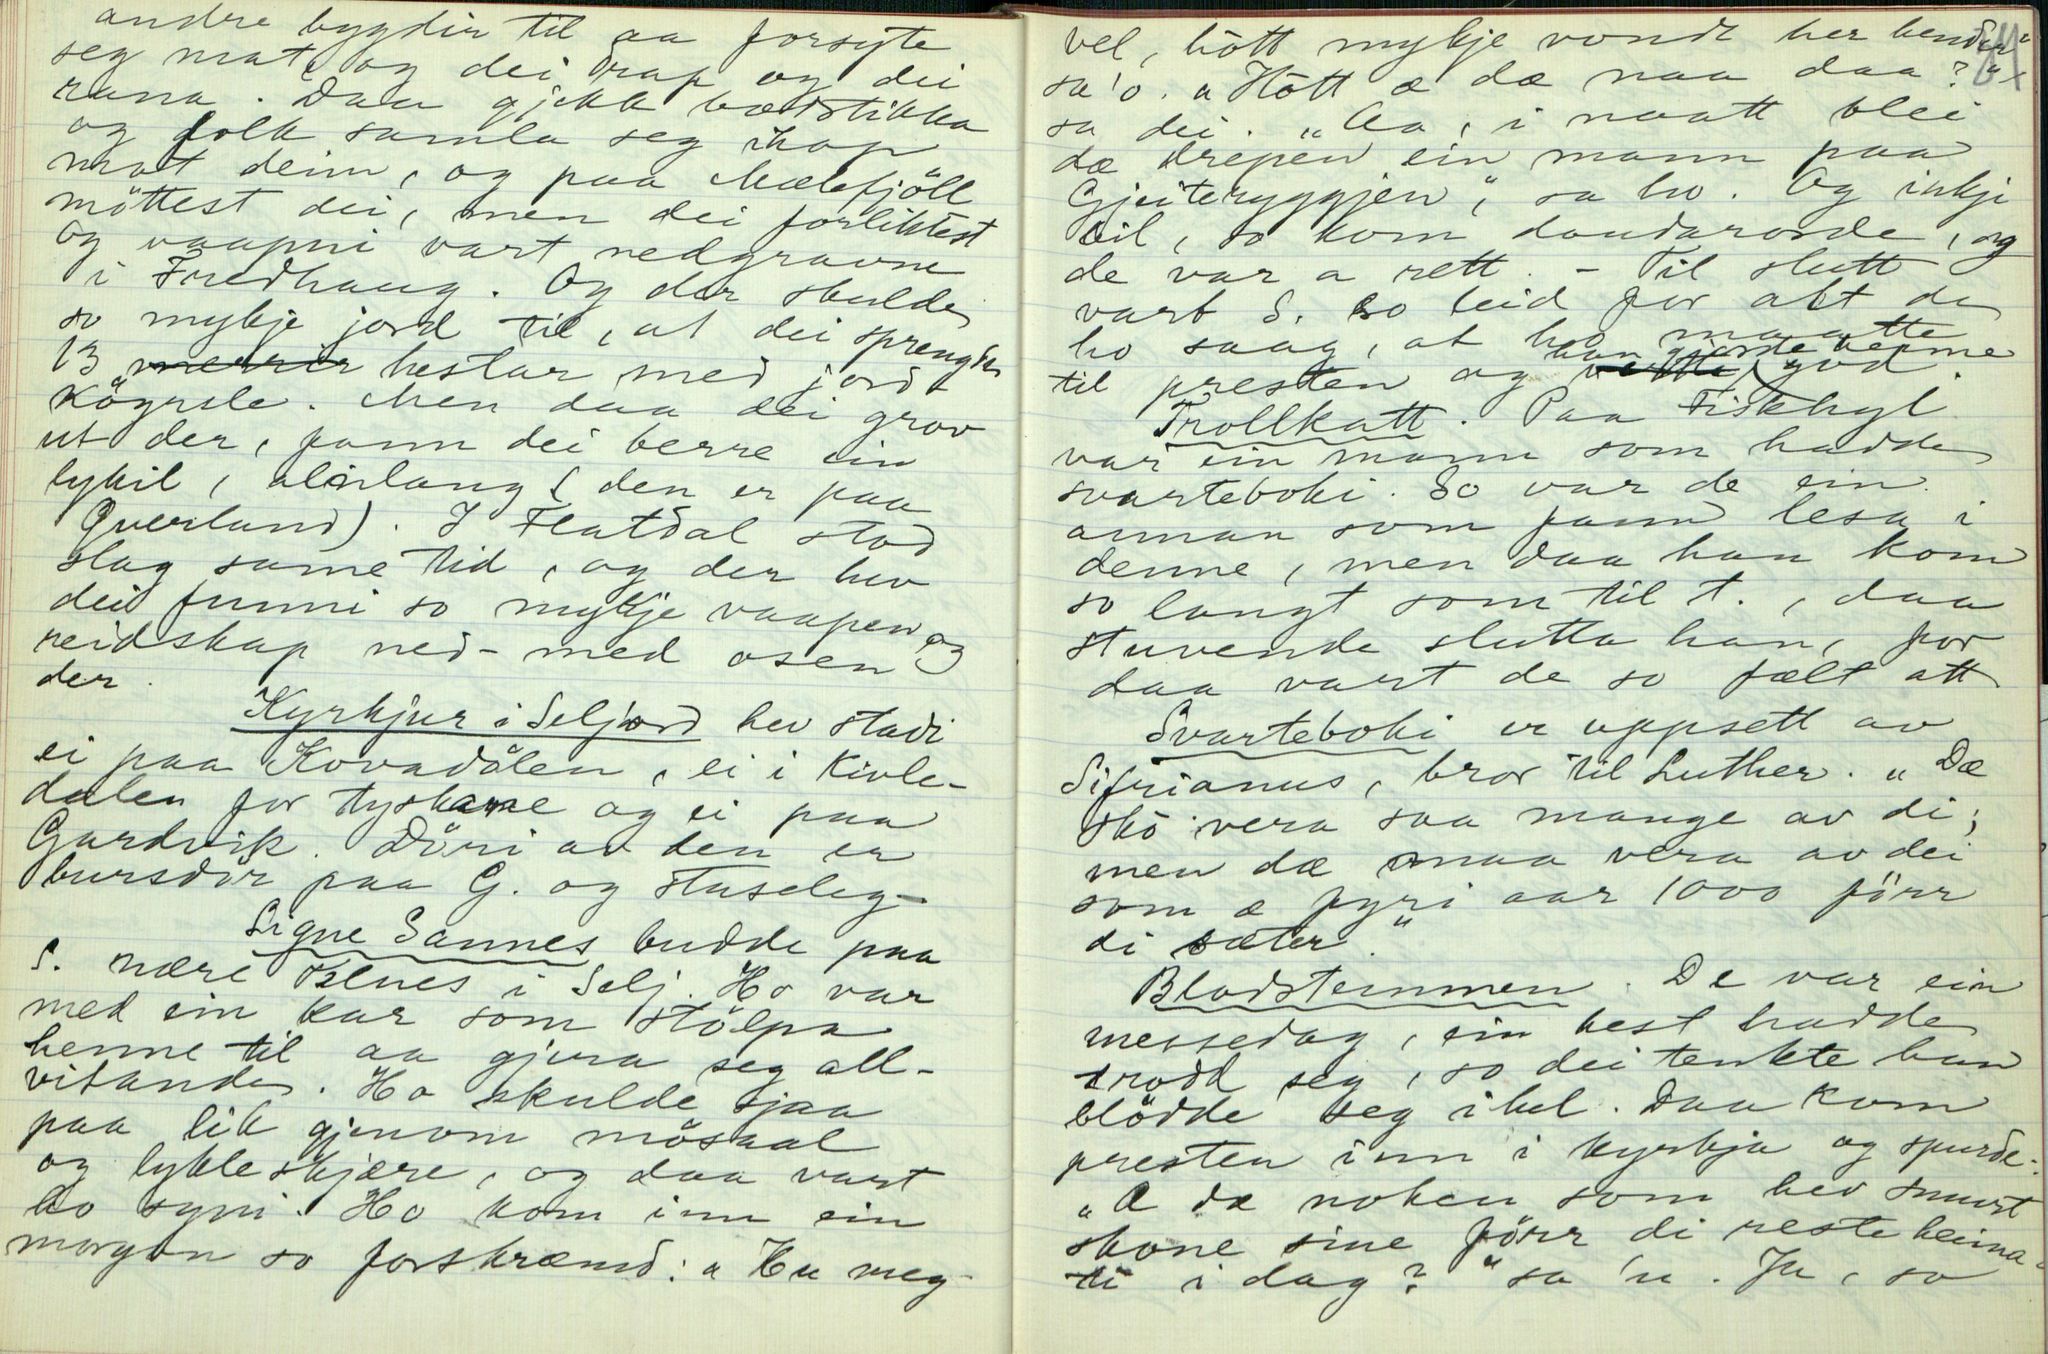 andre bygdir til aa forsyte
seg mat, og dei drap og dei
rana. Daa gjekk bodstikka
og folk samla seg ihop
mot deim, og paa Mælefjöll
möttest dei, men dei forliktest
og vaapni vart nedgravne
i Fredhaug. Og der skulde
so mykje jord til, at dei sprengde
13 merrir hestar med jord-
köyrsle. Men daa dei grov
ut der, fann dei berre ein
lykil, alinlang (den er paa
Qverland). I Flatdal stod
slag same tid, og der hev
dei funni so mykje vaapen og
reidskap ned-med osen
der.
Kyrkjur i Seljord hev stadi
ei paa Kovadålen, ei i Kivle-
dalen for tyskarne og ei paa
Gardvik. Döri av den er
bursdör paa G. og stuseleg
Signe Sannes budde paa
S. nære Benes i Selj. Ho var
med ein kar som stölpa
henne til aa gjera seg all-
vitande. Ho skulde sjaa
paa lik gjenom mösaal
og lykleskjære, og daa vart
ho syni. Ho kom inn ein
morgon so forskræmd: "Eu meg
vel, hött mykje vondt her hender"
sa 'o. "Hött æ dæ naa daa?"
sa dei. "Aa, i naatt blei
dæ drepen ein mann paa
Gjeiteryggjen," sa ho. Og inkji
bil, so kom daudarorde, og
de var a rett. - Til slutt
vart S. so leid for alt de
ho saag, at ho maatte
til presten og vertte han gjorde henne god.
Trollkatt. Paa Fiskhyl
var ein mann som hadde
svarteboki. So var de ein
annan som fann lesa i
denne, men daa han kom
so langt som til t., daa
stuvende slutta han, for
daa vart de so fælt att
Svarteboki er uppsett av
Sifrianus, bror til Luther. "Dæ
skö vera saa mange av di;
men dæ maa vera av dei
som æ fyri aar 1000 förr
di sæter."
Blodstemmen. De var ein
messedag, ein hest hadde
trodd seg, so dei tenkte han
blödde seg i hel. Daa kom
presten inn i kyrkja og spurde:
"Æ dæ noken som hev smurt
skone sine förr di reste heima-
ti i dag?" sa 'n. Ja, so